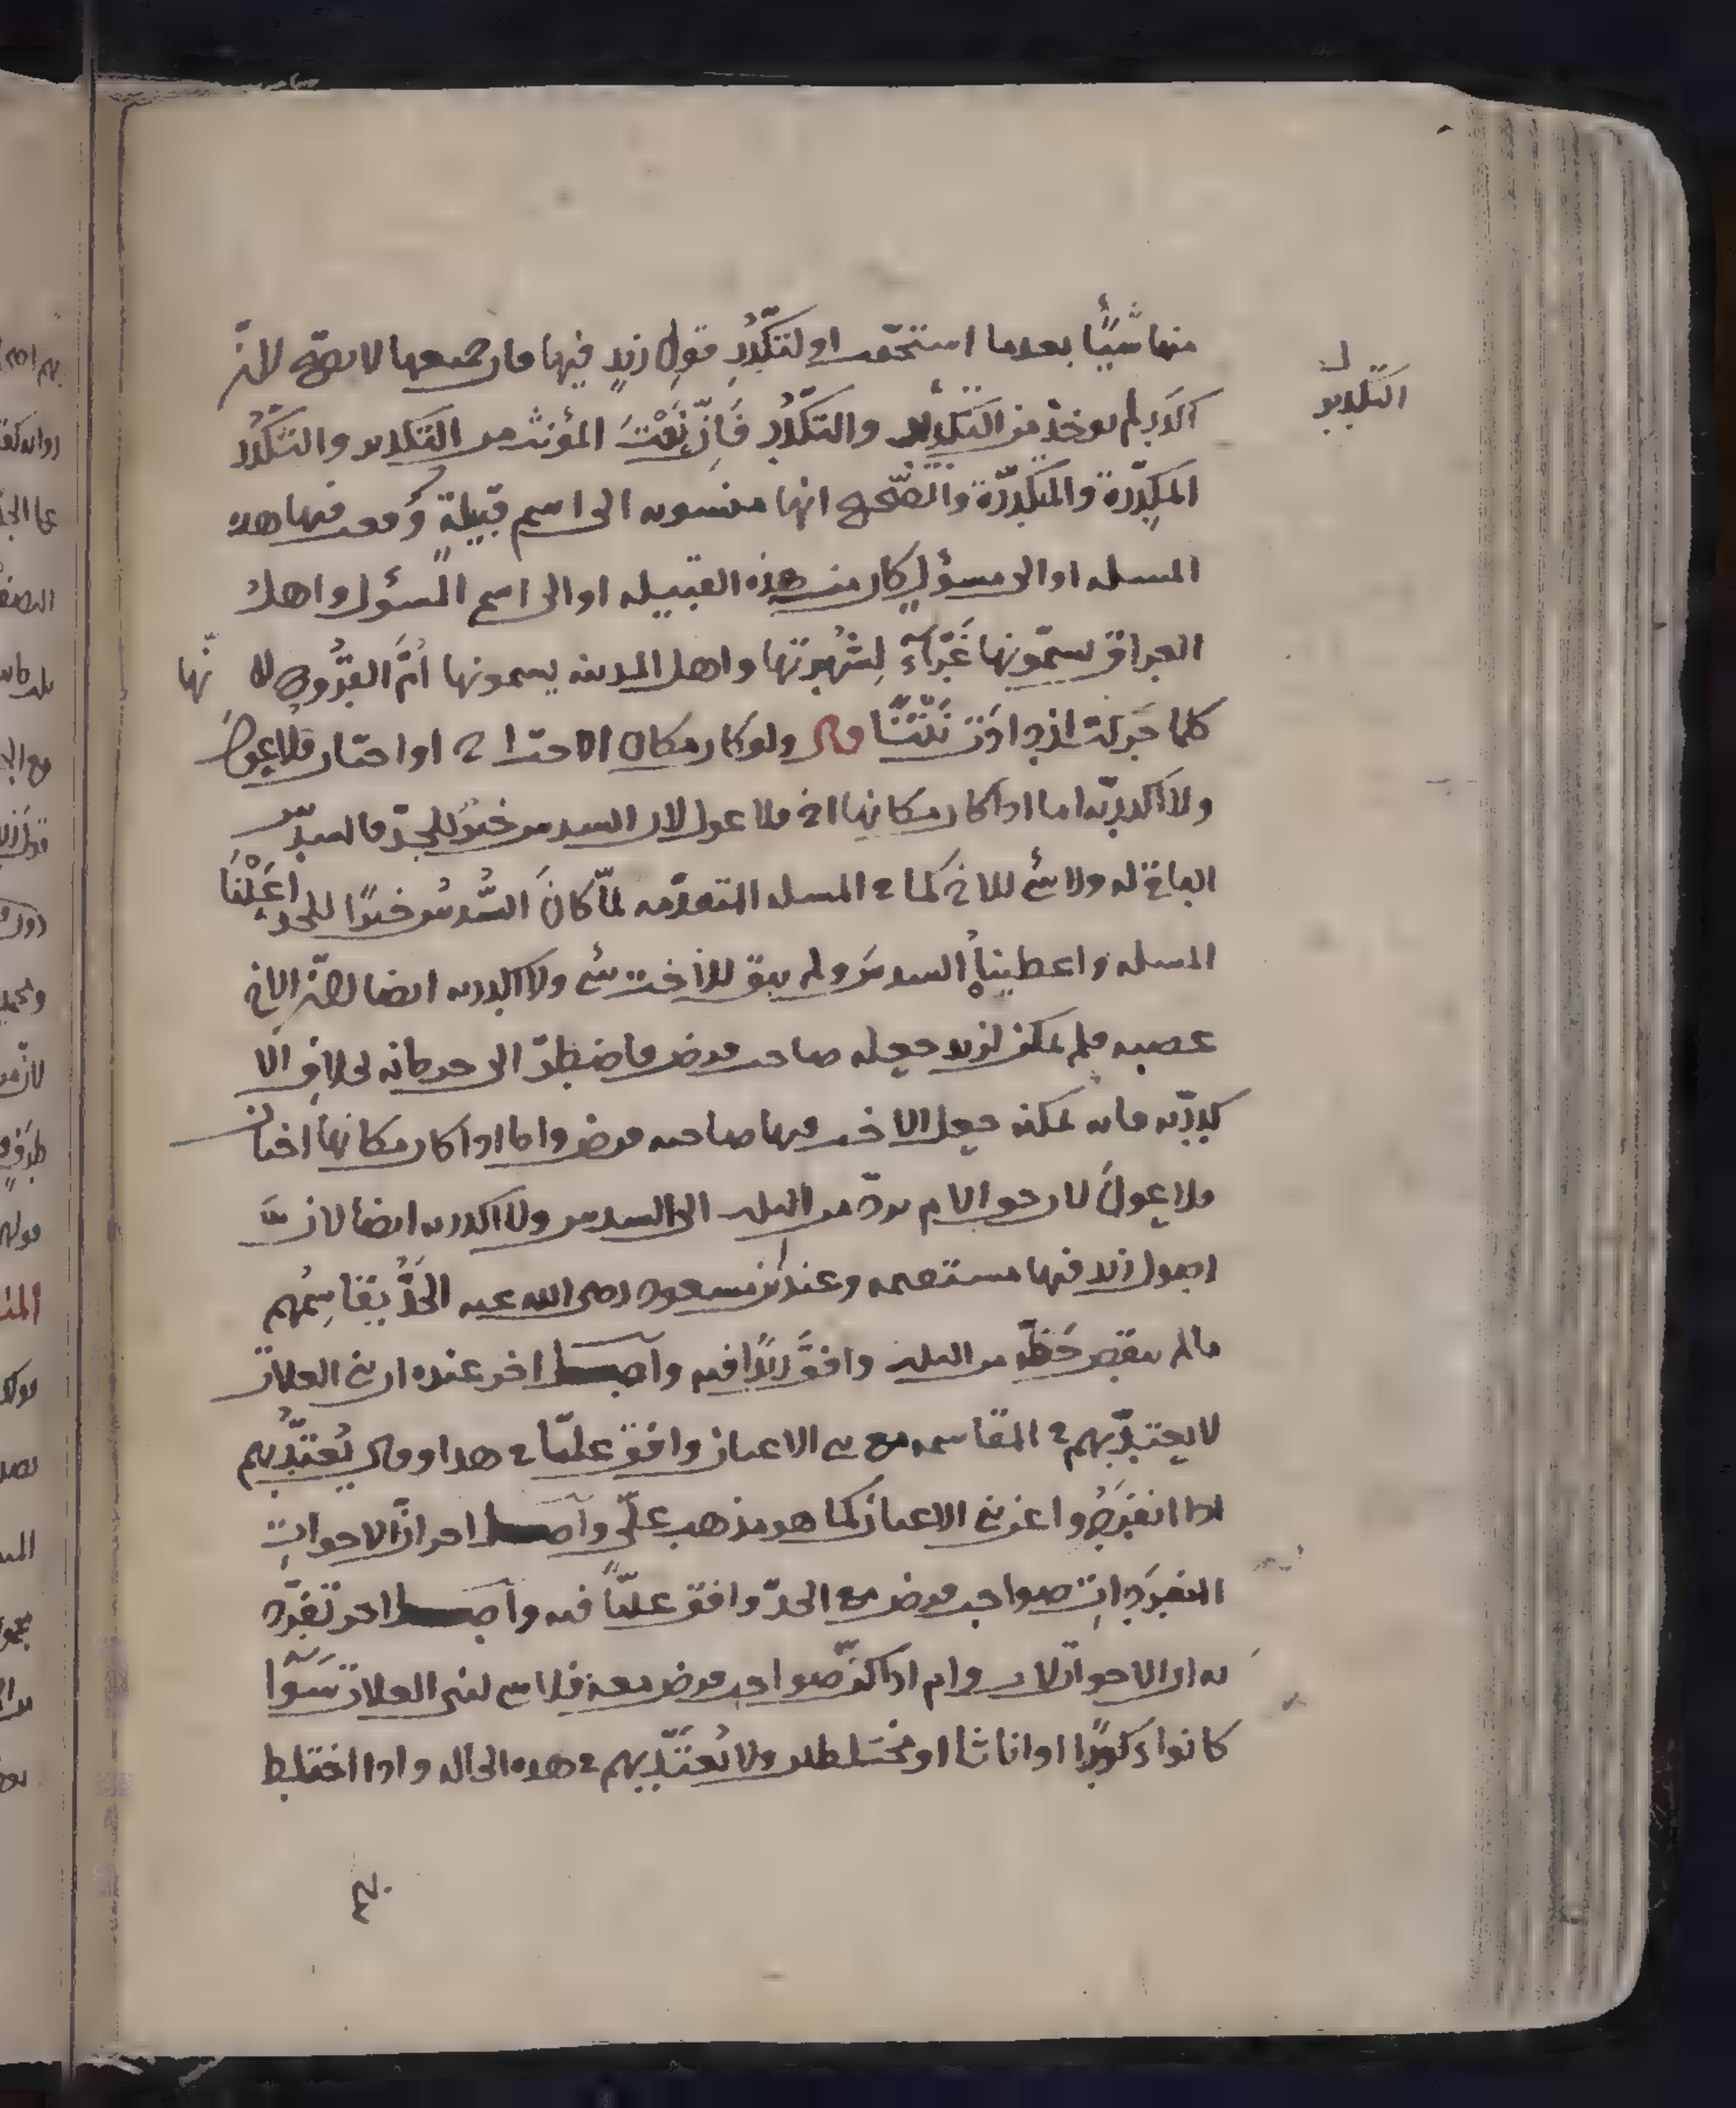 منها شيئًا بعدما استحقت او لتكدر قول زيد فيها فان جميعها لا يصح لان
الاكدر لم يوخذ من التكدير والتكدر فان نعت المؤنث من التكدير والتكدر
المكدرة والمتكدرة والصحيح انها منسوبه الى اسم قبيلة وقعت فيها هذه
المسله او الى مسؤل كان من هذه القبيله او الى اسم المسؤل واهل
العراق يسمونها غراء لشهرتها واهل المدينه يسمونها ام الفروخ لا نها
كلما حركت ازدادت نتنًا قال ولو كان مكان الاخت اخ او اختان فلا عول
ولا اكدريه اما اذا كان مكانها اخ فلا عول لان السدس خير للجد فالسدس
الباقي له ولا شئ للاخ كما في المسله المتقدمه لما كان السدس خيرًا للجد اعلنا
المسله واعطيناه السدس ولم يبق للاخت شئ ولا اكدريه ايضا لان الاخ
عصبه فلم يمكن لزيد جعله صاحب فرض فاضطر الى حرمانه بخلاف الا
كدريه فانه يمكنه جعل الاخت فيها صاحبه فرض واما اذا كان مكانها اختان
فلا عول لان حق الام يرد من الثلث الى السدس ولا اكدريه ايضا لان
اصول زيد فيها مستقيمه وعند ابن مسعود رضى الله عنه الجد يقاسمهم
ما لم ينقص حظه من الثلث وافق زيدًا فيه واصل اخر عنده ان بني العلات
لا يعتد بهم في المقاسمه مع بني الاعيان وافق عليًا في هذا وقال يعتد بهم
اذا انفردوا عن بني الاعيان كما هو مذهب علي واصل اخر ان الاخوات
المنفردات صواحب فرض مع الجد وافق عليًا فيه واصل اخر تفرد
به ان الاخوات لاب وام اذا كن صواحب فرض معه فلا شئ لبني العلات سوا
كانوا ذكورًا او اناثا او مختلطين ولا يعتد بهم في هذه الحاله واذا اختلط
التكدير